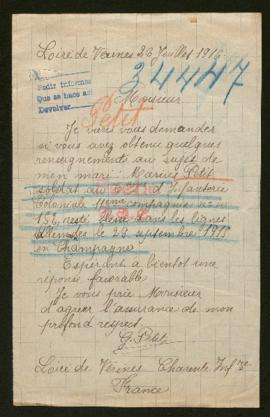 Loiré de Vérines 23 Juillet 1916
Pedir informes
Que se hace así
Devolver
34447
Monsieur
Petit
Je viens vous demander
si vous avez obtenu quelques
renseignements au sujet de
mon mari: Marius Petit
soldat au d'Infanterie
Coloniale compagnie
156, resté blessé dans les lignes
allemandes le 29 septembre 1915
en Champagne
Espérant à bientot une
réponse favorable
Je vous prie Monsieur
d'agréer l'assurance de mon
profond respect.
G. Petit
Loiré de Vérines Charente Infre
France